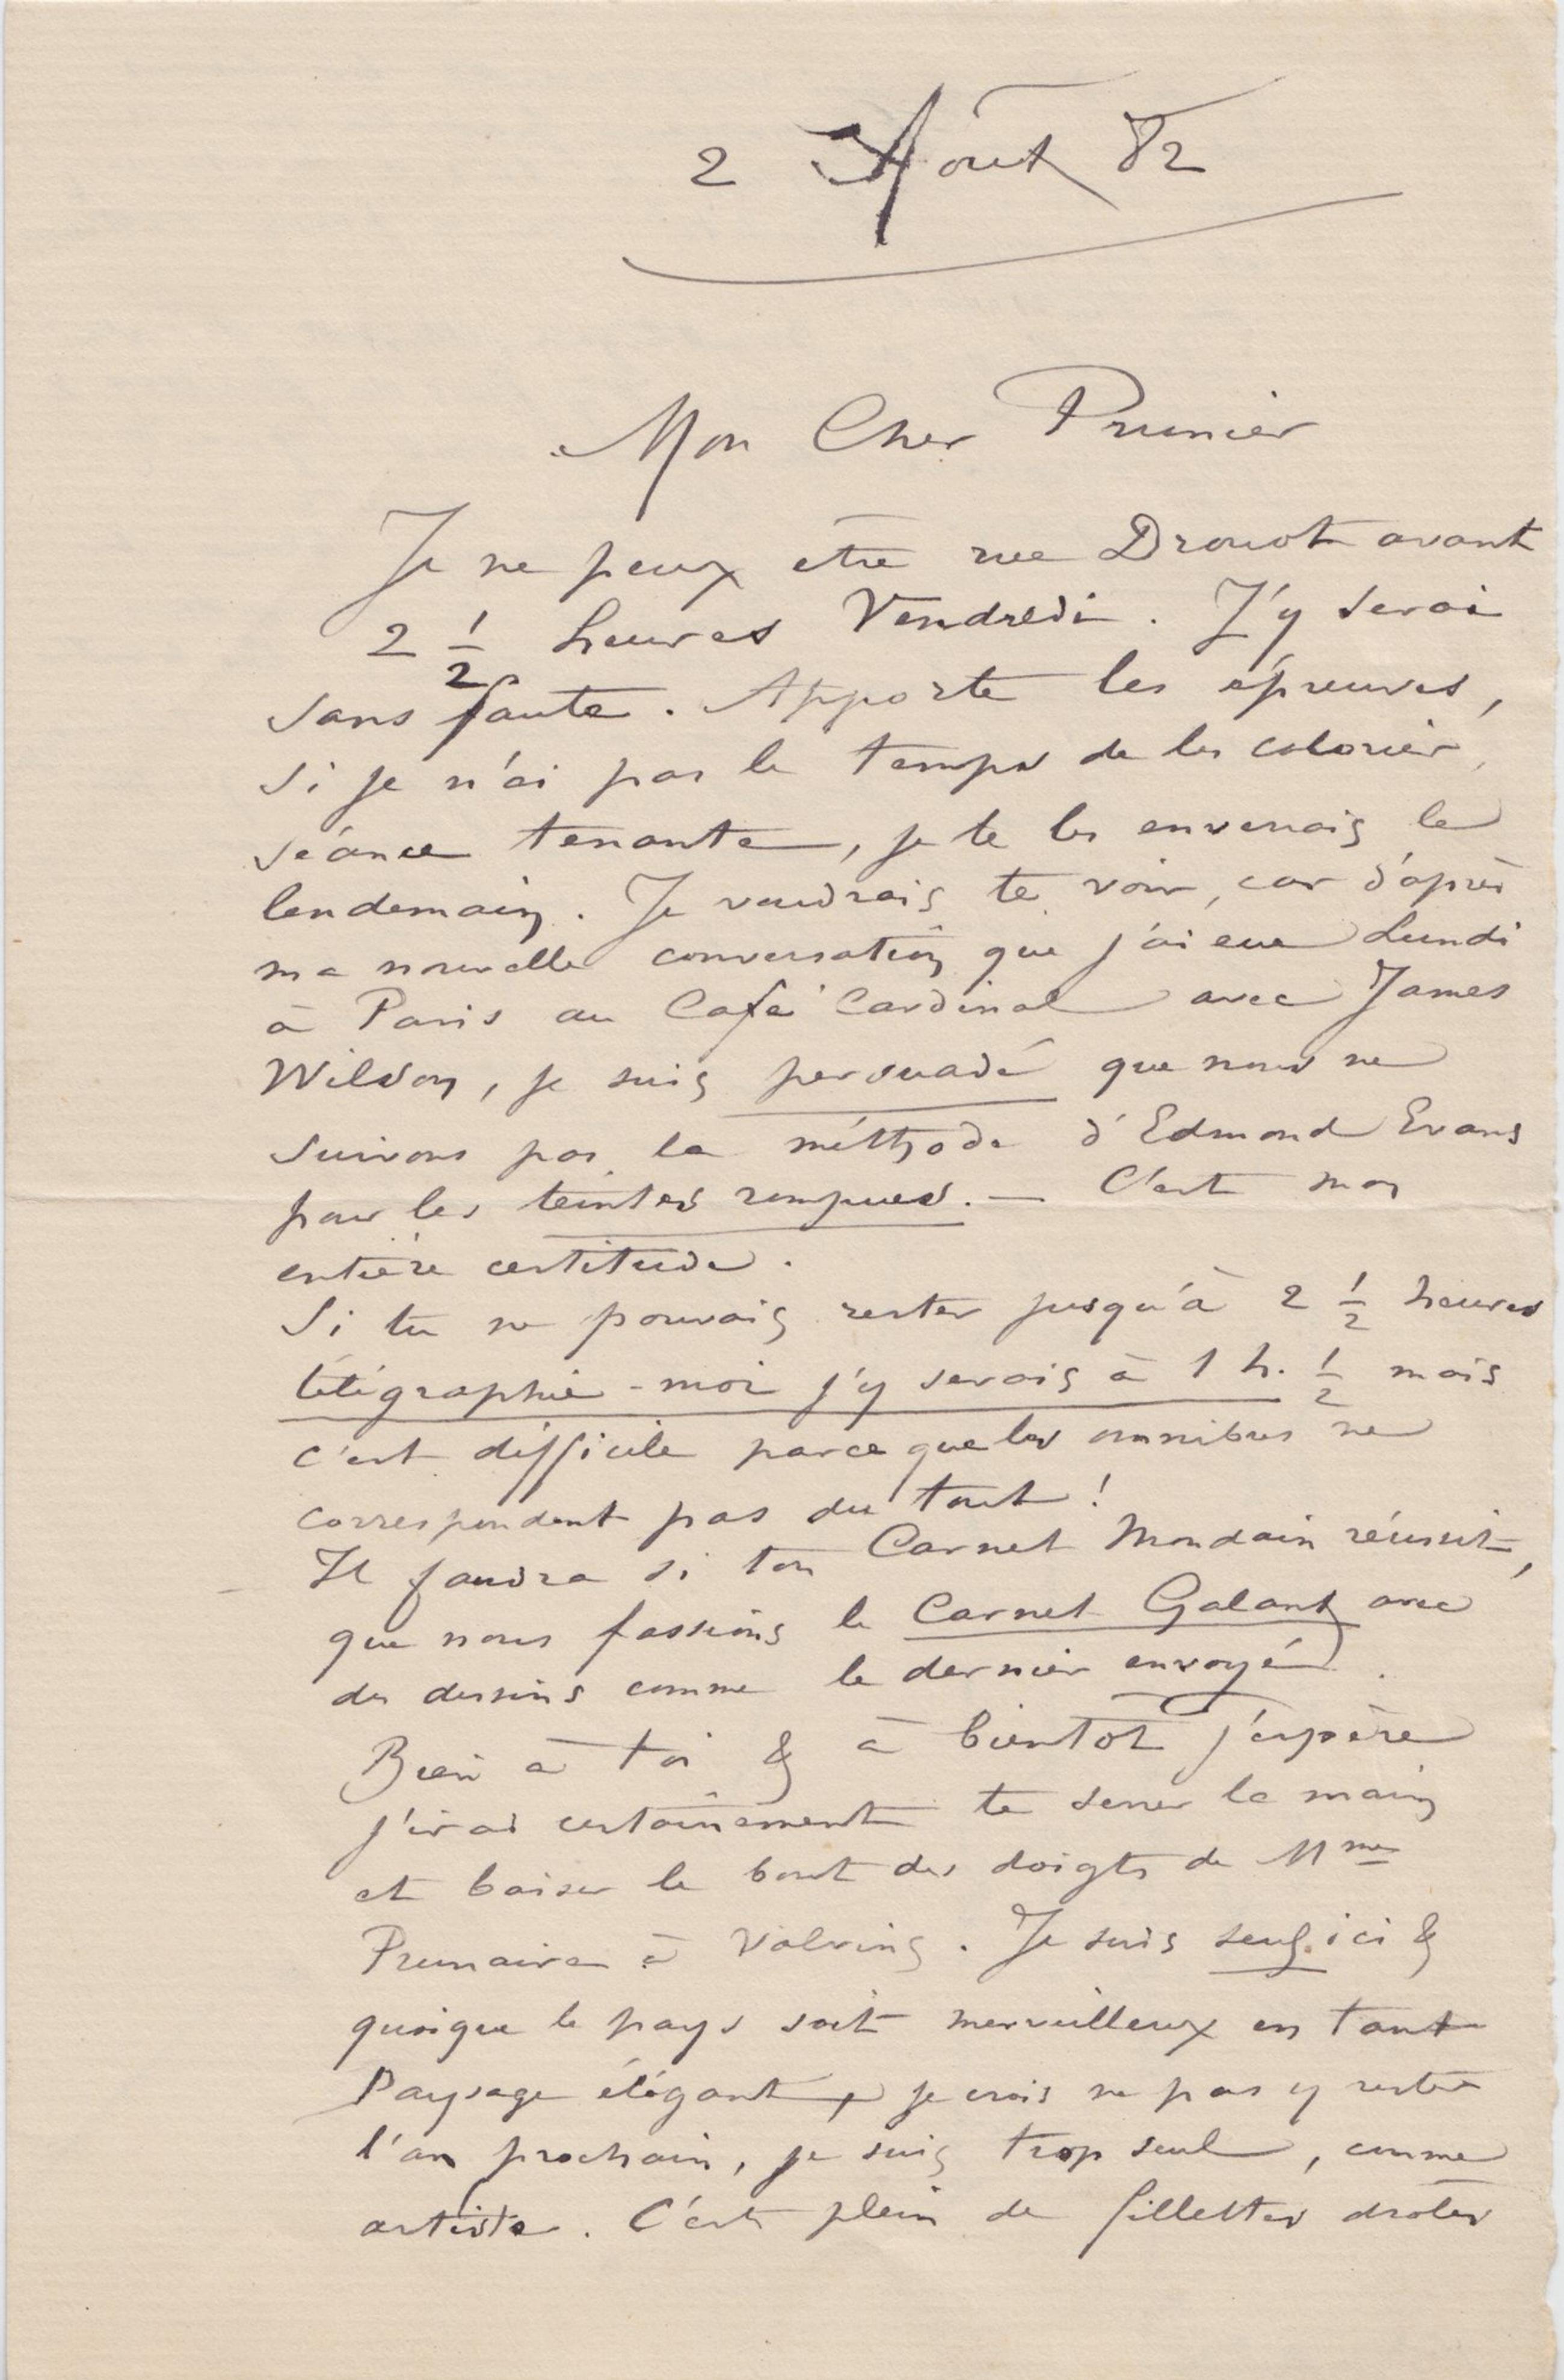 2 Août 82
Mon Cher Prunier
Je ne peux etre rue Drouot avant
2 1/2 heures Vendredi. J'y serai
sans faute. Apporte les épreuves,
si je n'ai pas le temps de les colorier,
séance tenante, je te les enverrais le
lendemain. Je voudrais te voir, car d'après
ma nouvelle conversation que j'ai eue Lundi
à Paris au Café Cardinal avec James
Wilson, je suis persuadé que nous ne
suivons pas la méthode d'Edmond Evans
pour les teintes rompues. — C'est mon
entière certitude.
Si tu ne pouvais rester jusqu'à 2 1/2 heures
télégraphie-moi j'y serais à 1 h. 1/2 mais
c'est difficile parce que les omnibus ne
correspondent pas du tout!
Il faudra si ton Carnet Mondain réussit,
que nous fassions le Carnet Galant avec
des dessins comme le dernier envoyé.
Bien à toi & à bientôt j'espère
j'irai certainement te serrer la main
et baiser le bout des doigts de Mme
Prunaire à Valvins. Je suis seul ici &
quoique le pays soit merveilleux en tant
Paysage élégant, je crois ne pas y rester
l'an prochain, je suis trop seul, comme
artiste. C'est plein de fillettes drôles